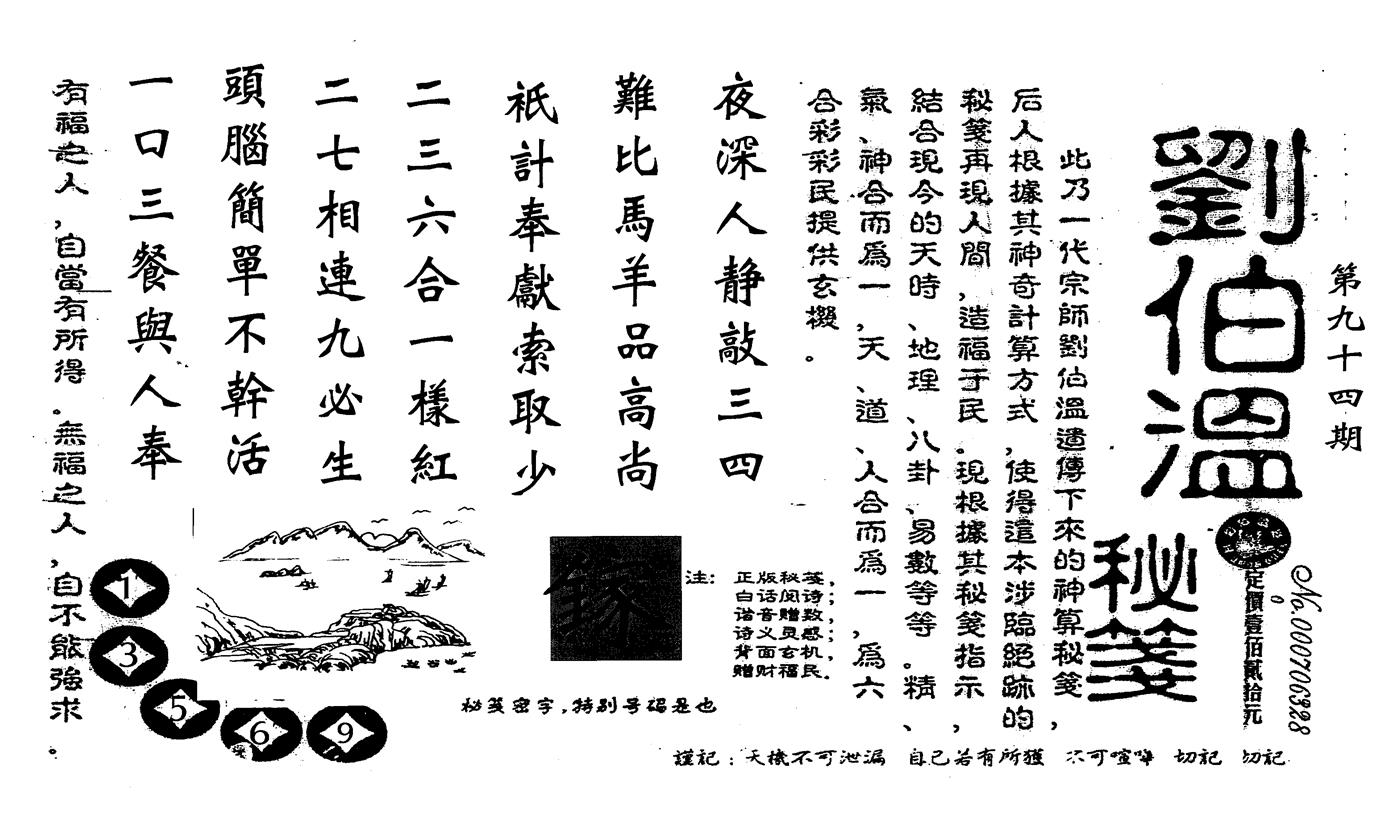 第九十四期
劉伯溫
秘箋
定價壹佰貳拾元
No.000706328
此乃一代宗師劉伯溫遺傳下來的神算秘箋，
后人根據其神奇計算方式，使得這本涉臨絕跡的
秘箋再現人間，造福于民。現根據其秘箋指示，
結合現今的天時、地理、八卦、易數等等。精、
氣、神合而為一，天、道、人合而為一，為六
合彩彩民提供玄機。
夜深人静敲三四
難比馬羊品高尚
祇計奉獻索取少
二三六合一樣紅
二七相連九必生
頭腦簡單不幹活
一口三餐與人奉
有福之人，自當有所得。無福之人，自不能強求。
注：
正版秘笺，
白话阅诗；
谐音赠数，
诗义灵感；
背面玄机，
赠财福民。
秘笺密字，特别号码是也
1
3
5
6
9
謹記：天機不可泄漏 自己若有所獲 不可喧嘩 切記 切記